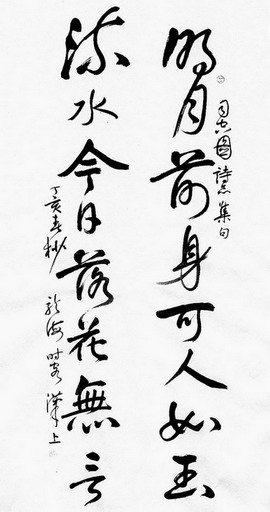 司空圖詩品集句
明月前身可人如玉
流水今日落花無言
丁亥春杪 海時客漢上